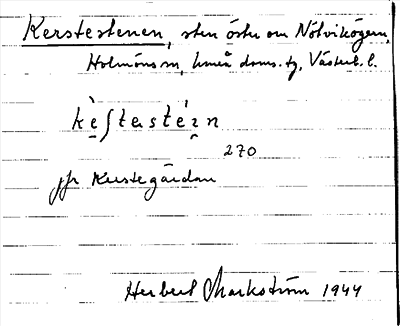 Kerstestenen, sten öster om Nötvikögern,
Holmöns sn, Umeå doms. tg, Västerb. l.
kèʃtestéɪn
270
jfr Kerstegårdan
Herbert Markström 1944